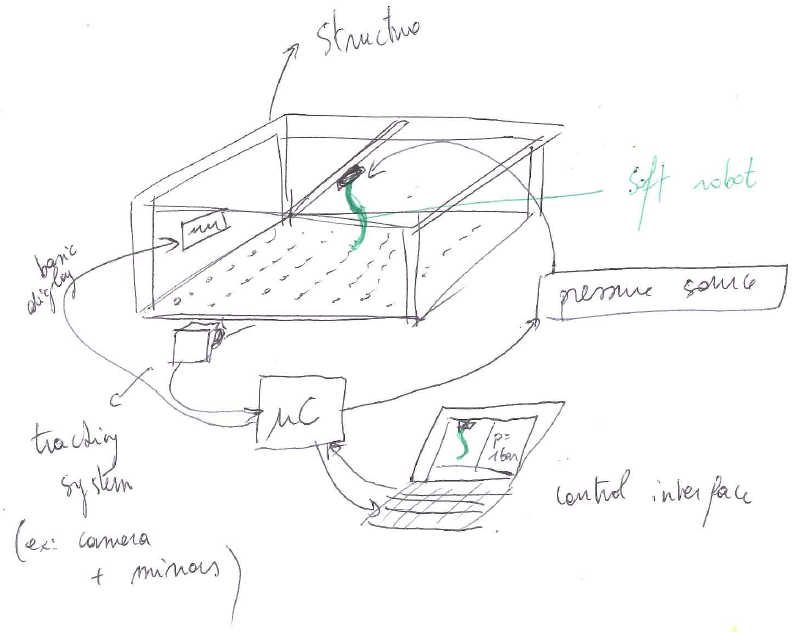 Structure
soft robot
basic
display
pressure source
μC
p=
1bar
tracking
system
(ex: camera
+ mirrors)
control interface